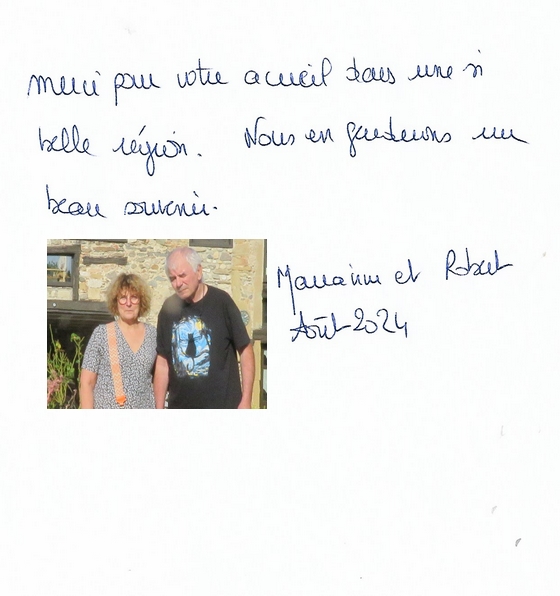 Merci pour votre accueil dans une si
belle région. Nous en garderons un
beau souvenir.
Marianne et Robert
Août 2024